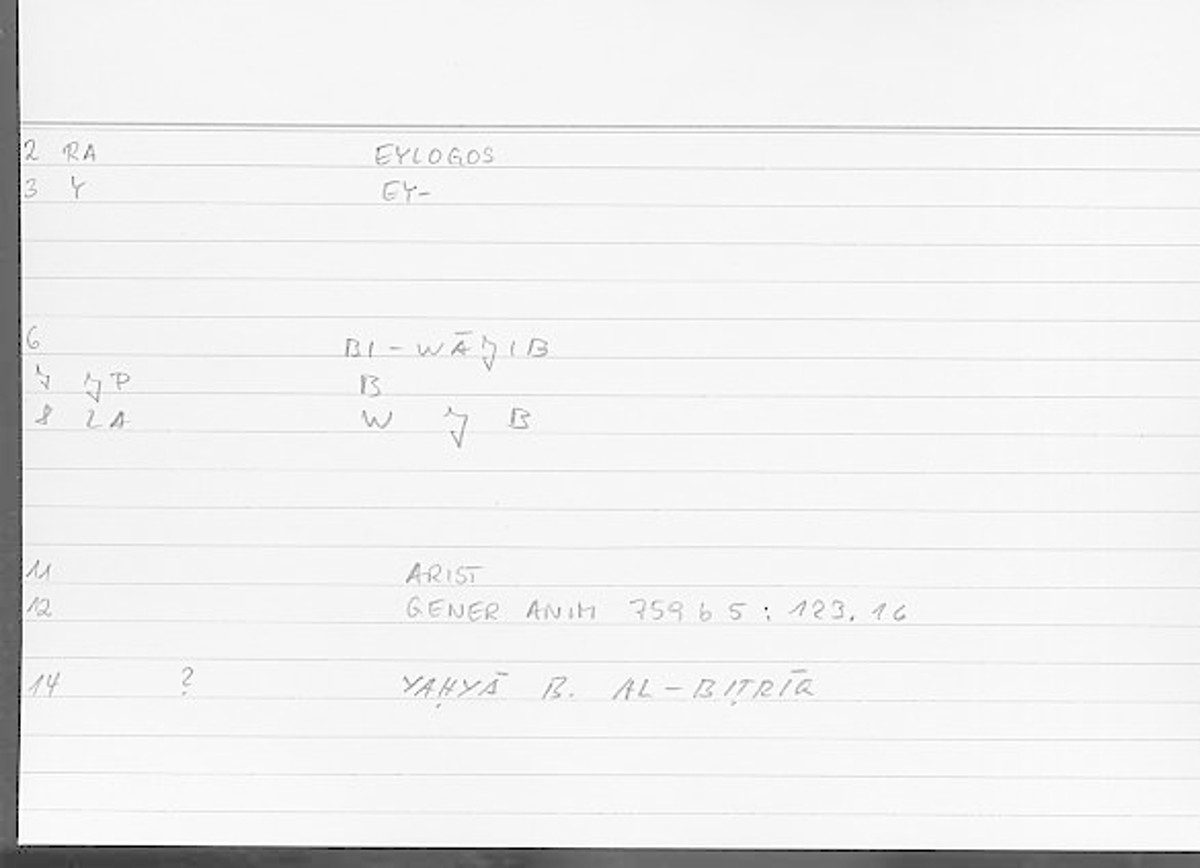 2 RA EYLOGOS
3 Y EY-
6 BI-WĀǦIB
7 ǦP B
8 2A W Ǧ B
11 ARIST
12 GENER ANIM 759 b 5 : 123.16
14 ? YAḤYĀ B. AL-BIṬRĪQ